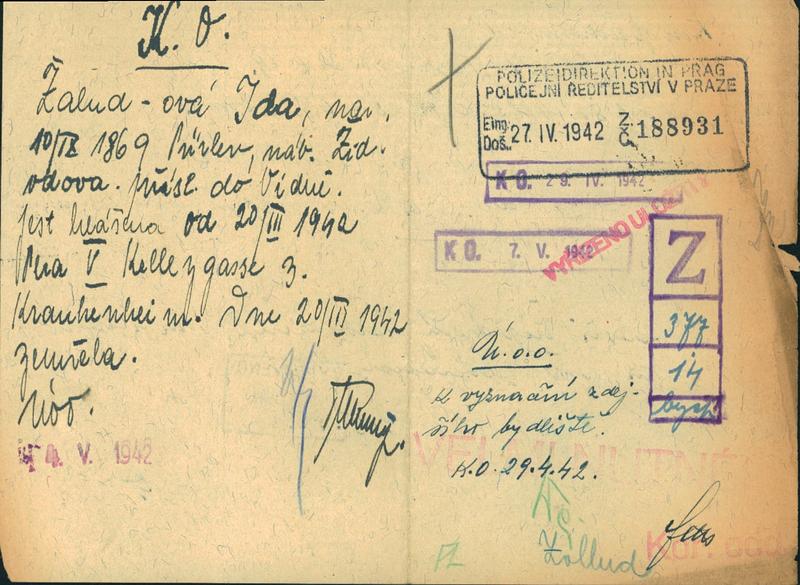 K. O.
Žalud-ová Ida, nar.
10/IX 1869 náb. Žid.
vdova. přísl. do Vídně.
jest hlášena od 20/III 1942
V 3.
Krankenheim. Dne 20/III 1942
zemřela.
ÚOO.
4. V. 1942
POLIZEIDIREKTION IN PRAG
POLICEJNÍ ŘEDITELSTVÍ V PRAZE
Eing. Doš. 27. IV. 1942 Z. Č. 188931
K O. 29. IV. 1942
VYŘÍZENO ULOŽIT
K O. 7. V. 1942
Z
377
14
Ú.o.o.
K vyznačení zdej-
šího bydliště.
VELMI NUTNÉ
K.O. 29.4.42.